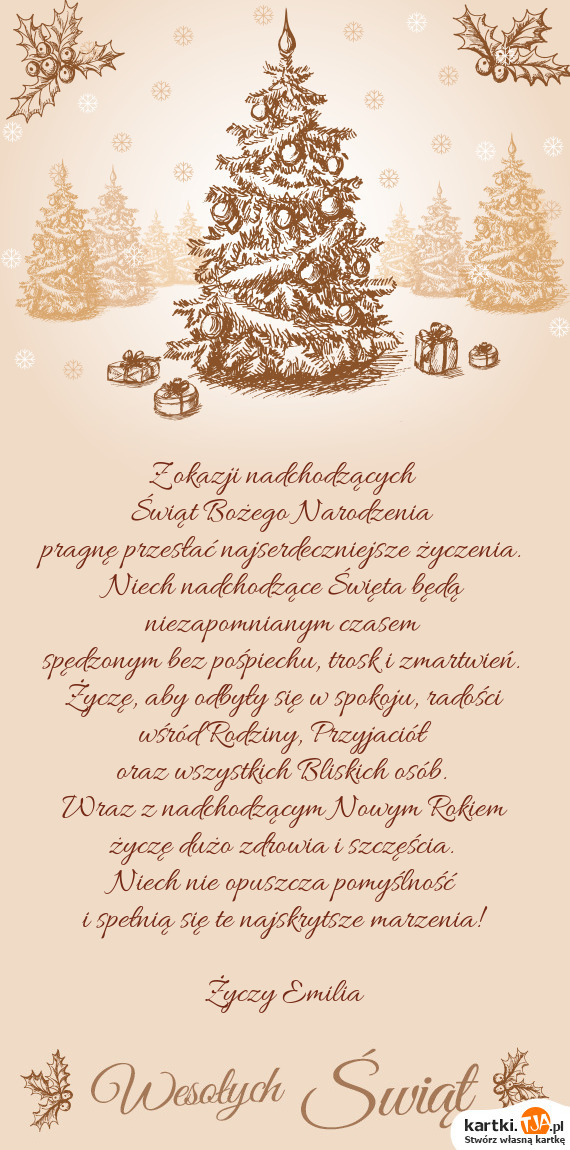 Z okazji nadchodzących
Świąt Bożego Narodzenia
pragnę przesłać najserdeczniejsze życzenia.
Niech nadchodzące Święta będą
niezapomnianym czasem
spędzonym bez pośpiechu, trosk i zmartwień.
Życzę, aby odbyły się w spokoju, radości
wśród Rodziny, Przyjaciół
oraz wszystkich Bliskich osób.
Wraz z nadchodzącym Nowym Rokiem
życzę dużo zdrowia i szczęścia.
Niech nie opuszcza pomyślność
i spełnią się te najskrytsze marzenia!
Życzy Emilia
Wesołych Świąt
kartki.TJA.pl
Stwórz własną kartkę